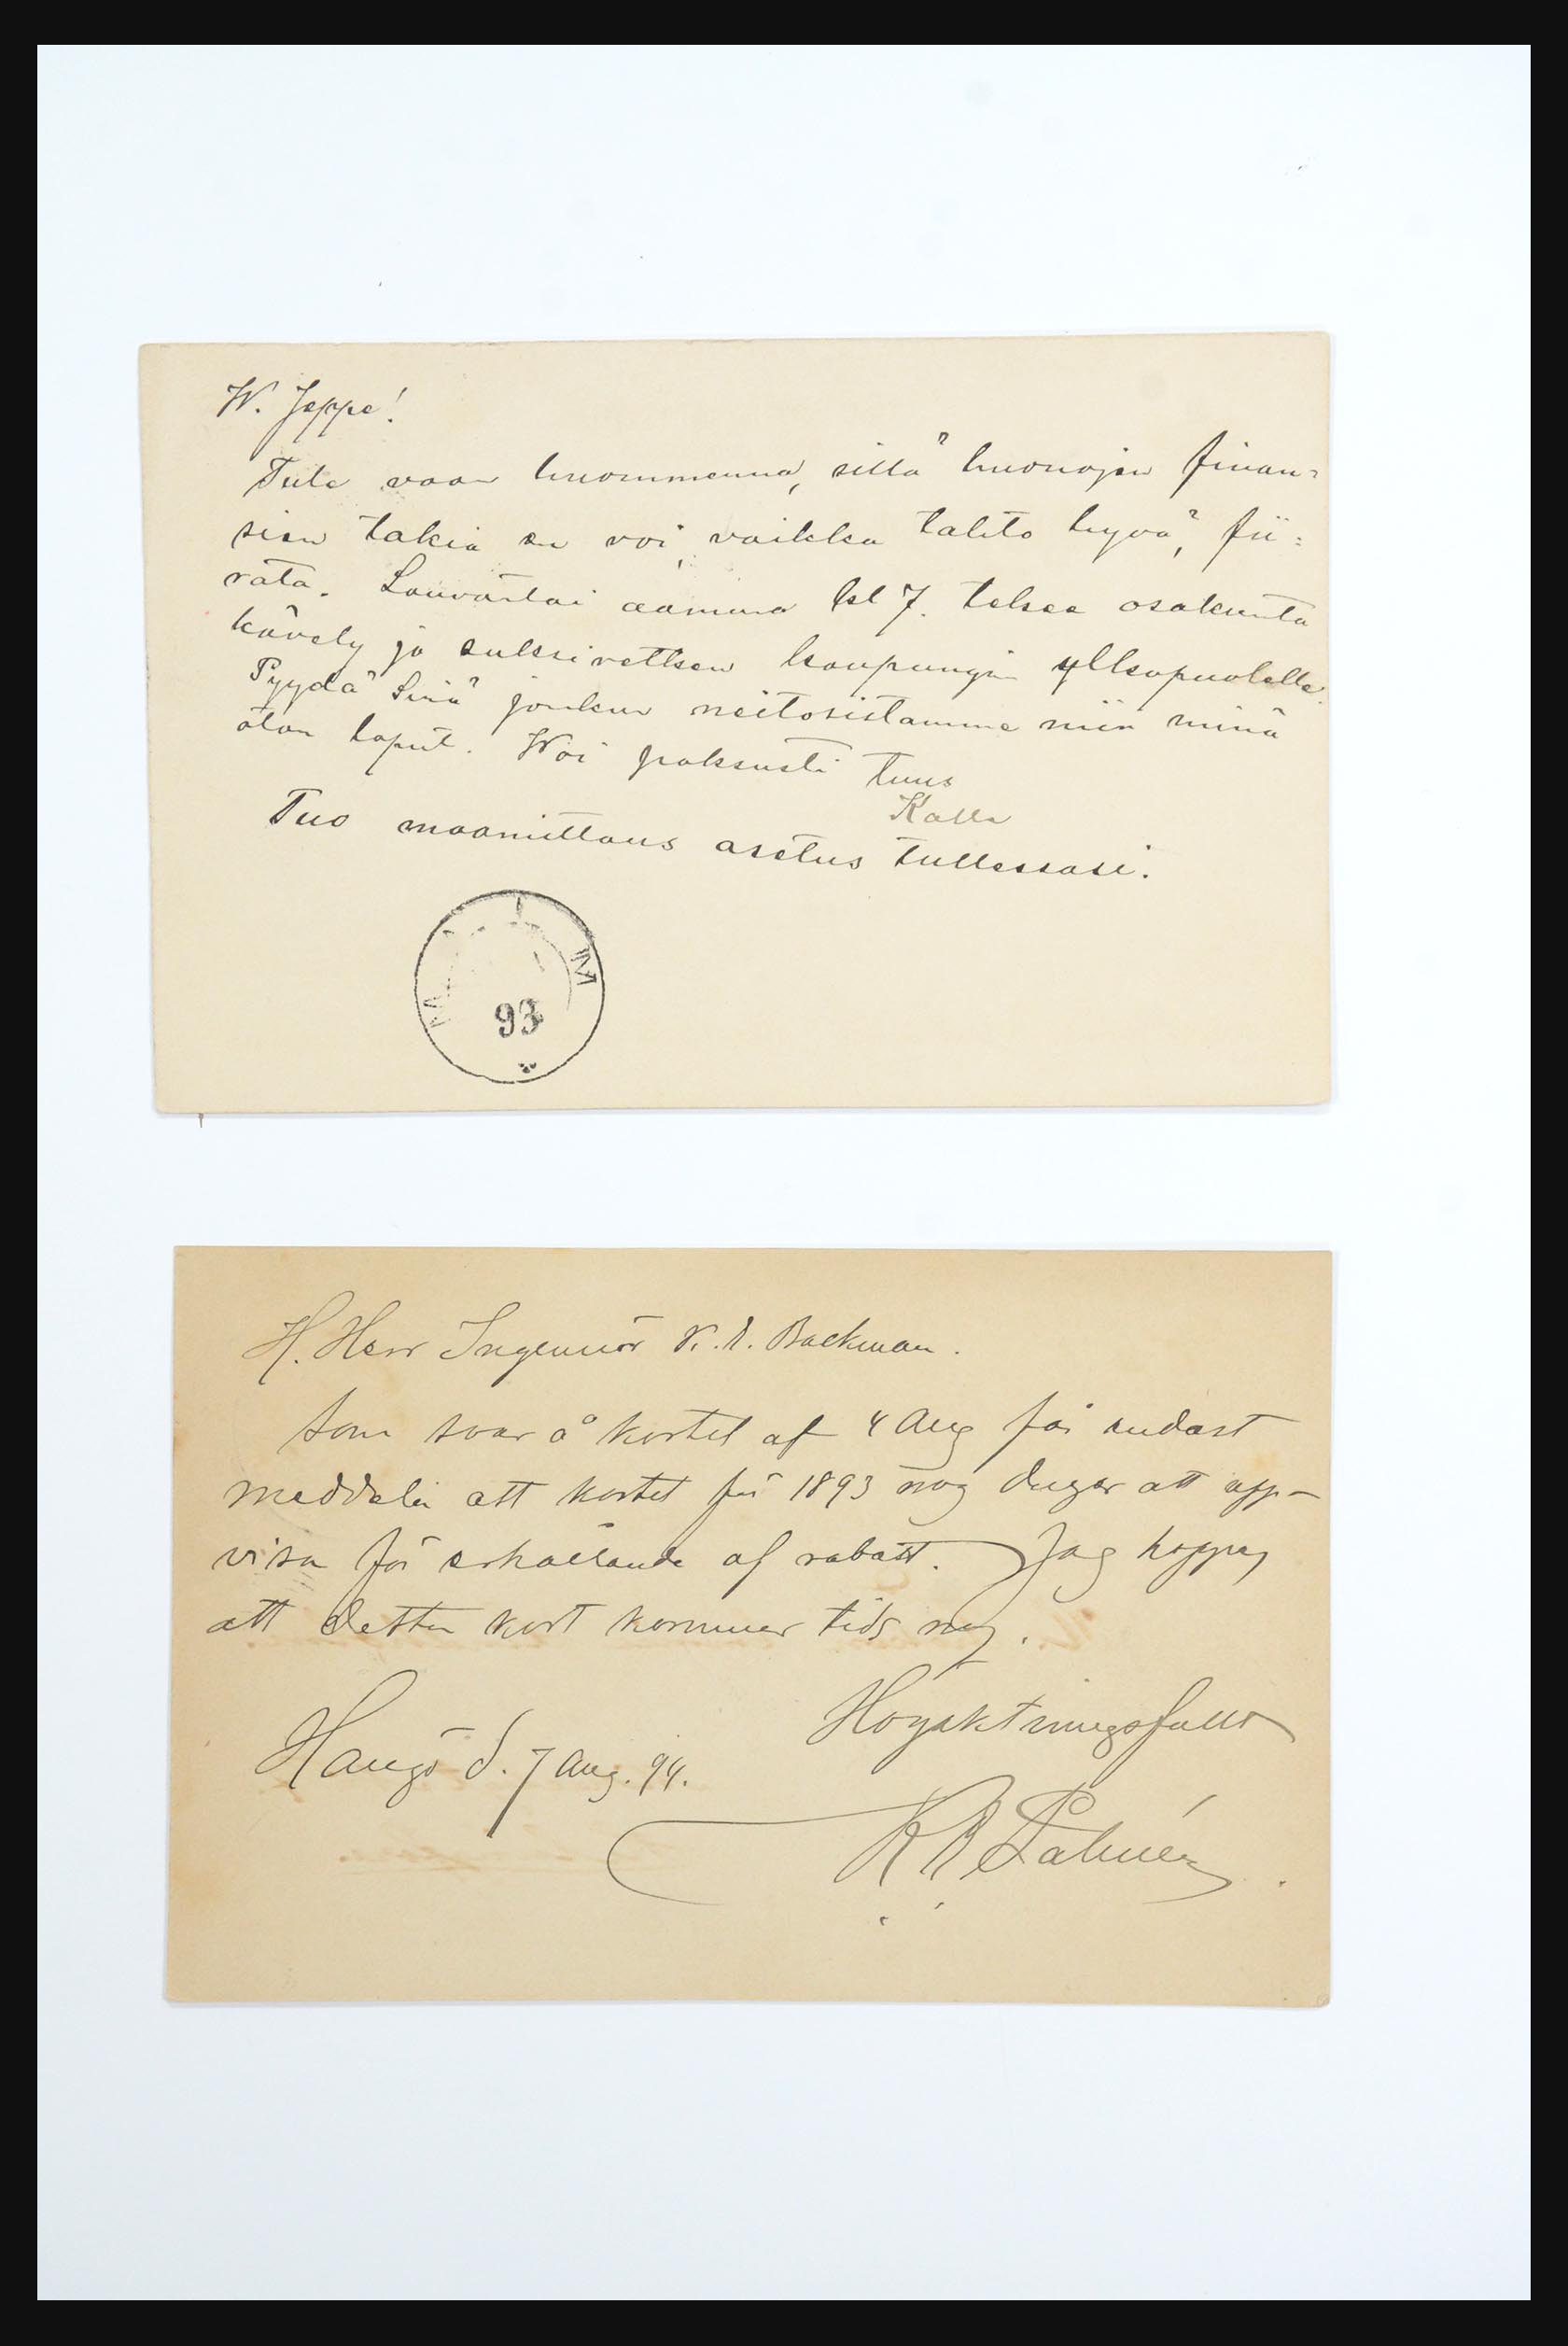 W. Jeppe!
Tule vaan huommenna, sillä huonojen finan=
sien takia en voi, vaikka tahto hyvä, fii=
rata. Lauvantai aamuna kl 7. tekee osakunta
kävely ja suksiretken kaupungin ulkopuolelle.
Pyydä Sinä jonkun neitosistamme niin minä
otan loput. Woi paksusti Tuus
Kalle
Tuo maanmittaus asetus tullessasi.
M
93
H. Herr Ingeniör K. A. Backman.
Som svar å kortet af 4 Aug får endast
meddela att kortet för 1893 nog duger att upp-
visa för erhållande af rabatt. Jag hoppas
att detta kort kommer tids nog.
Högaktningsfullt
Hangö d. 7 Aug. 94.
K B Palmén